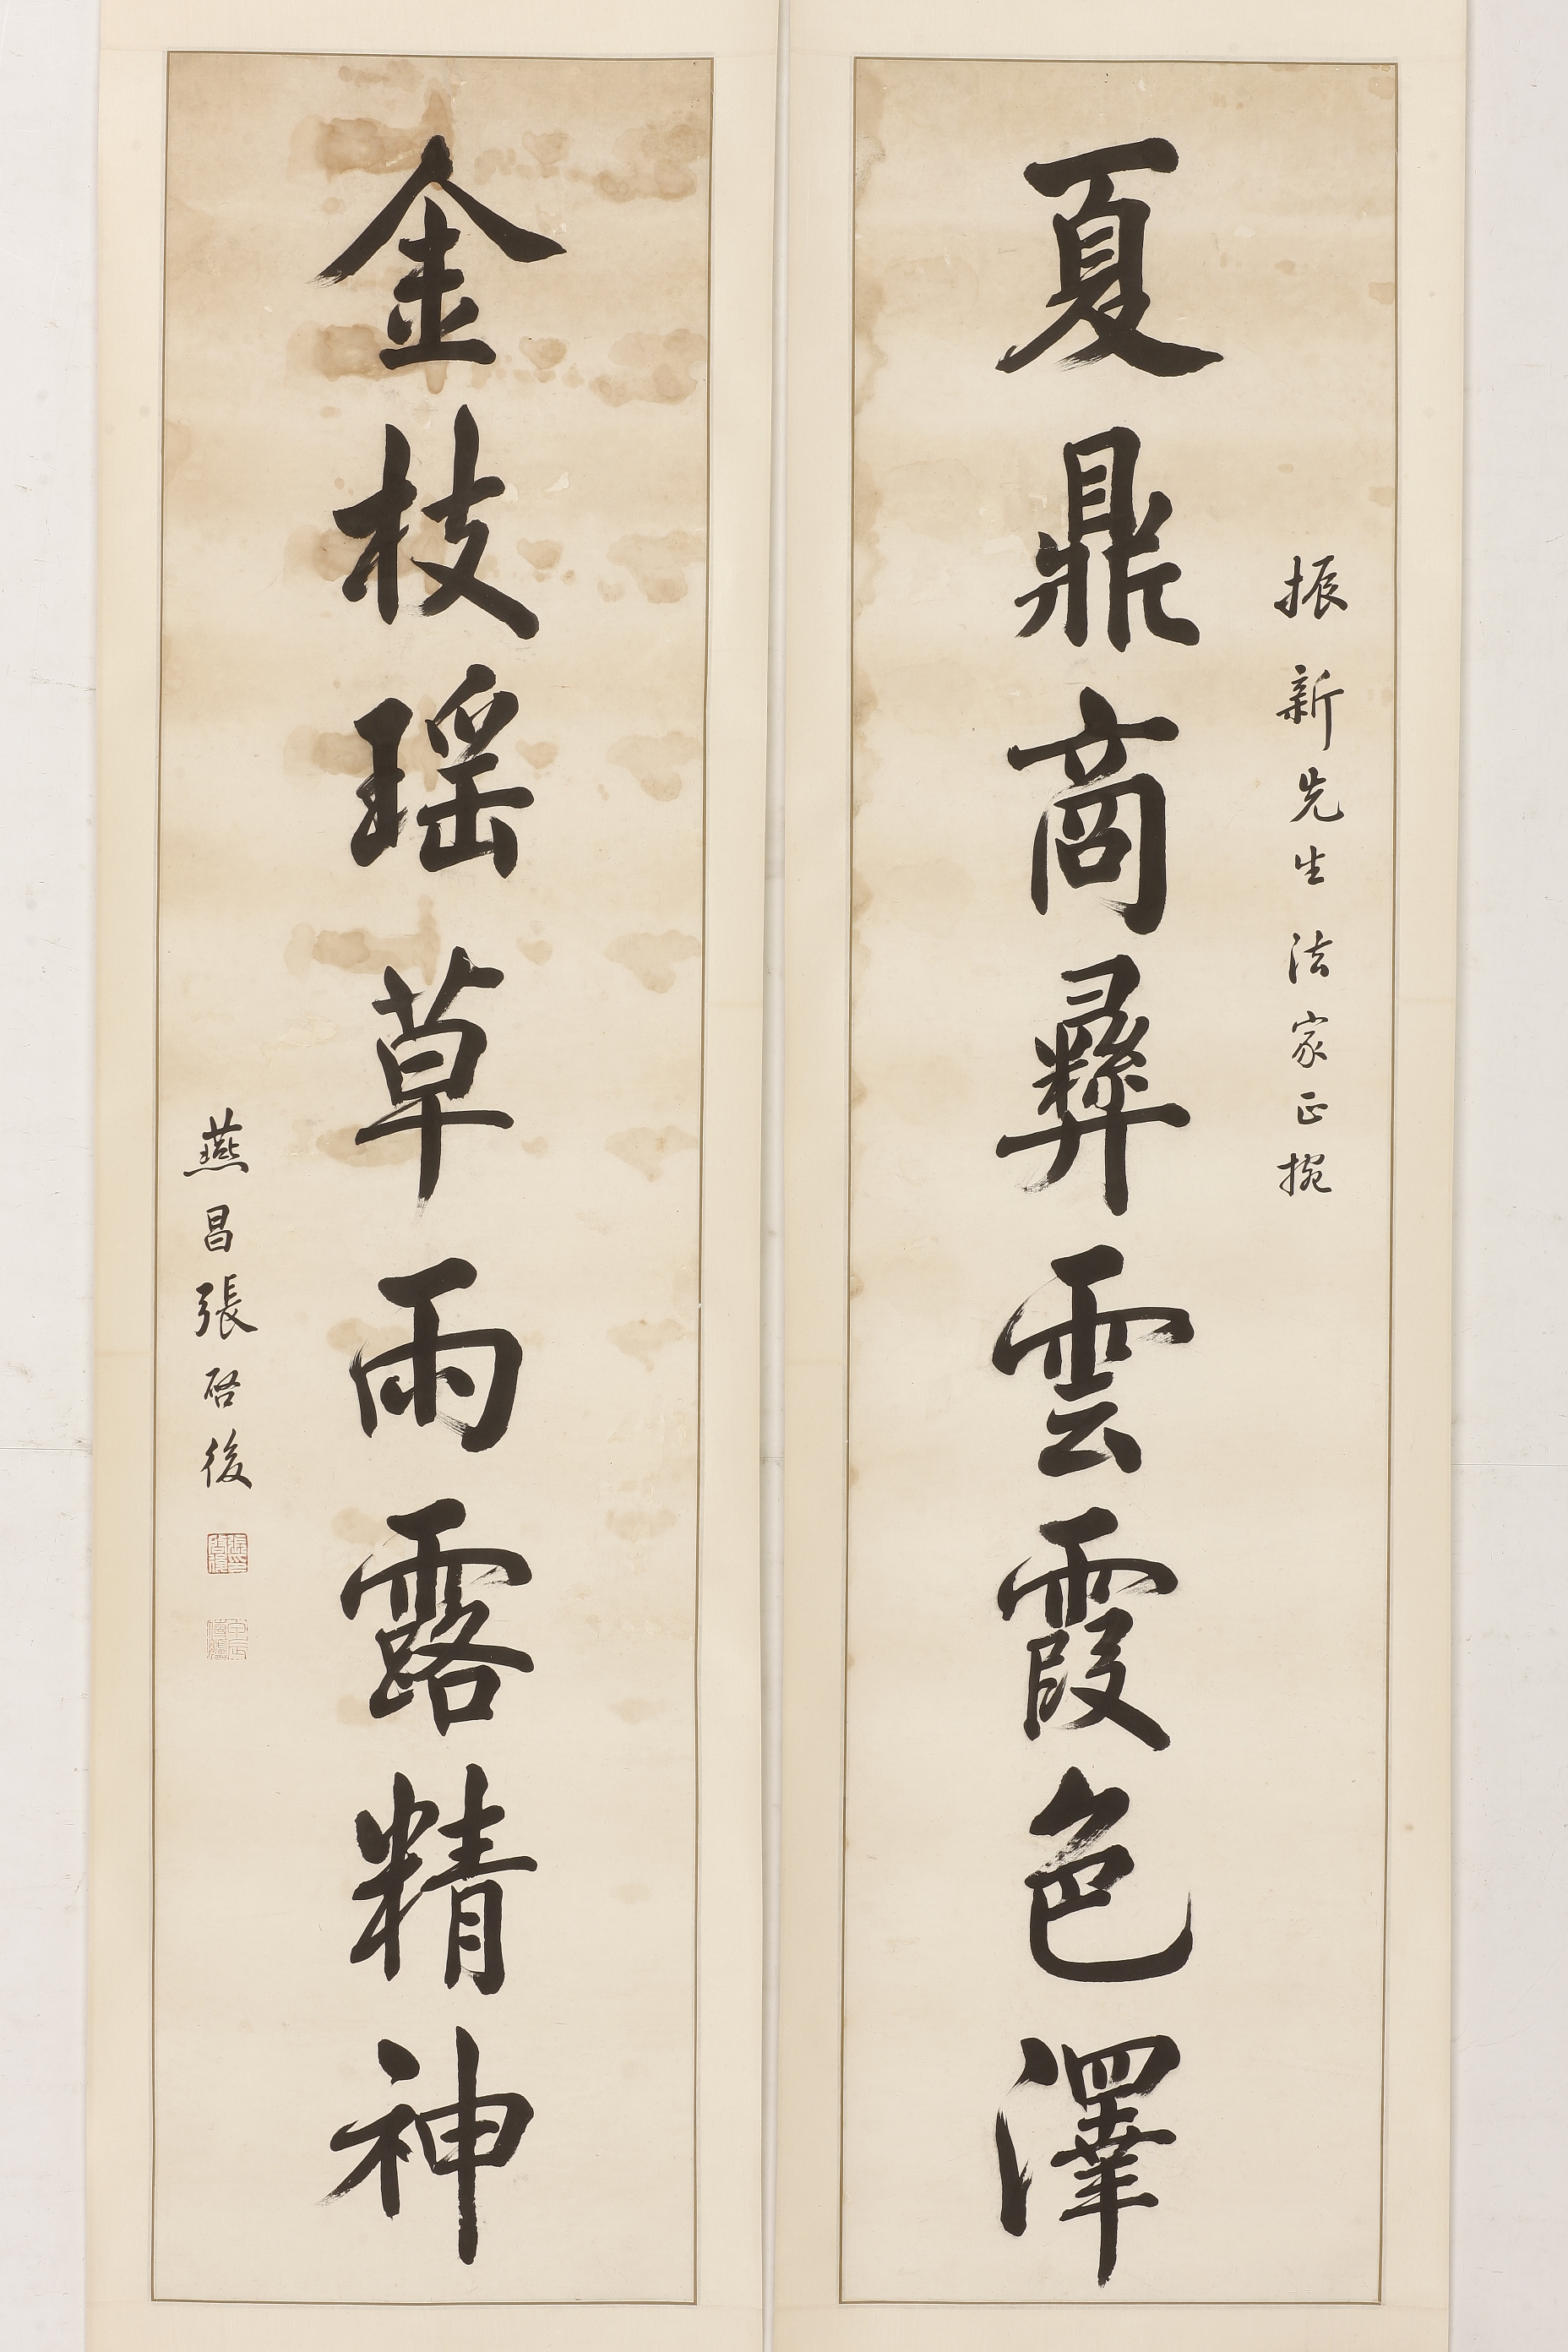 振新先生法家正捥
夏鼎商彝雲霞色澤
金枝瑶草雨露精神
燕昌張啓後